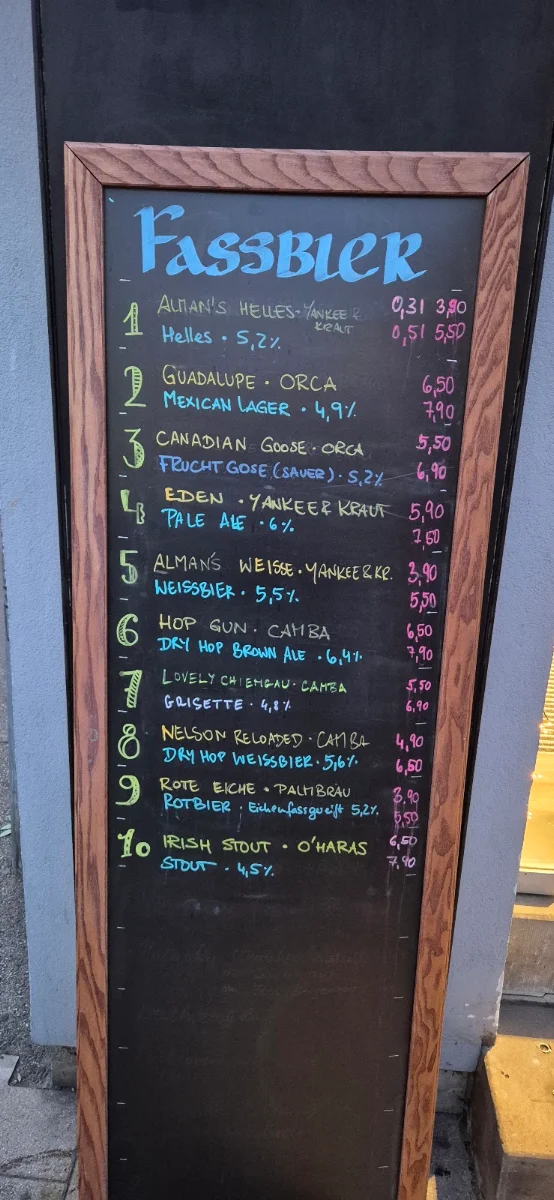 FASSBIER
1 ALMAN'S HELLES · YANKEE & KRAUT 0,3l 3,90
Helles · 5,2% 0,5l 5,50
2 GUADALUPE · ORCA 6,50
MEXICAN LAGER · 4,9% 7,90
3 CANADIAN GOOSE · ORCA 5,50
FRUCHT GOSE (SAUER) · 5,2% 6,90
4 EDEN · YANKEE & KRAUT 5,90
PALE ALE · 6% 7,50
5 ALMAN'S WEISSE · YANKEE & KR. 3,90
WEISSBIER · 5,5% 5,50
6 HOP GUN · CAMBA 6,50
DRY HOP BROWN ALE · 6,4% 7,90
7 LOVELY CHIEMGAU · CAMBA 5,50
GRISETTE · 4,8% 6,90
8 NELSON RELOADED · CAMBA 4,90
DRY HOP WEISSBIER · 5,6% 6,50
9 ROTE EICHE · PALMBRÄU 3,90
ROTBIER · Eichenfassgereift 5,2% 5,50
10 IRISH STOUT · O'HARAS 6,50
STOUT · 4,5% 7,90